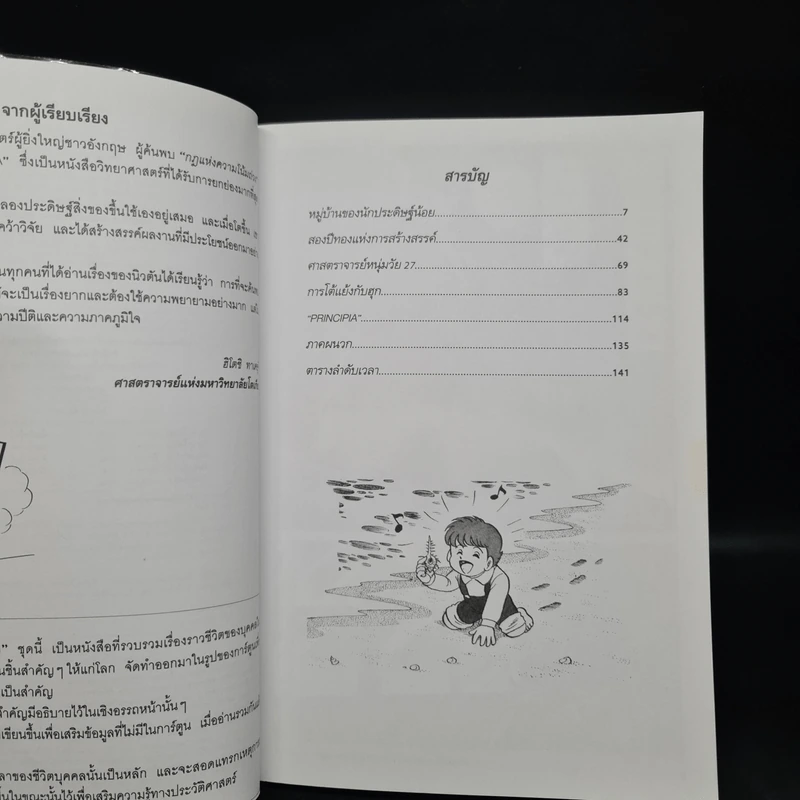 จากผู้เรียบเรียง
ตร์ผู้ยิ่งใหญ่ชาวอังกฤษ ผู้ค้นพบ "กฎแห่งความโน้มถ่วง
ซึ่งเป็นหนังสือวิทยาศาสตร์ที่ได้รับการยกย่องมากที่สุด
ลองประดิษฐ์สิ่งของขึ้นใช้เองอยู่เสมอ และเมื่อโตขึ้น
คว้าวิจัย และได้สร้างสรรค์ผลงานที่มีประโยชน์ออกมา
นทุกคนที่ได้อ่านเรื่องของนิวตันได้เรียนรู้ว่า การที่จะ
จะเป็นเรื่องยากและต้องใช้ความพยายามอย่างมาก
วามปีติและความภาคภูมิใจ
ฮิโตชิ
ศาสตราจารย์แห่งมหาวิทยาลัย
ชุดนี้ เป็นหนังสือที่รวบรวมเรื่องราวชีวิตของบุคคล
นชิ้นสำคัญ ๆ ให้แก่โลก จัดทำออกมาในรูปของการ์ตูน
เป็นสำคัญ
สำคัญมีอธิบายไว้ในเชิงอรรถหน้านั้น ๆ
เขียนขึ้นเพื่อเสริมข้อมูลที่ไม่มีในการ์ตูน เมื่ออ่านรวมกัน
ลาของชีวิตบุคคลนั้นเป็นหลัก และจะสอดแทรกเหตุการ
นในขณะนั้นไว้เพื่อเสริมความรู้ทางประวัติศาสตร์
สารบัญ
หมู่บ้านของนักประดิษฐ์น้อย...7
สองปีทองแห่งการสร้างสรรค์...42
ศาสตราจารย์หนุ่มวัย 27...69
การโต้แย้งกับฮุก...83
"PRINCIPIA"...114
ภาคผนวก...135
ตารางลำดับเวลา...141